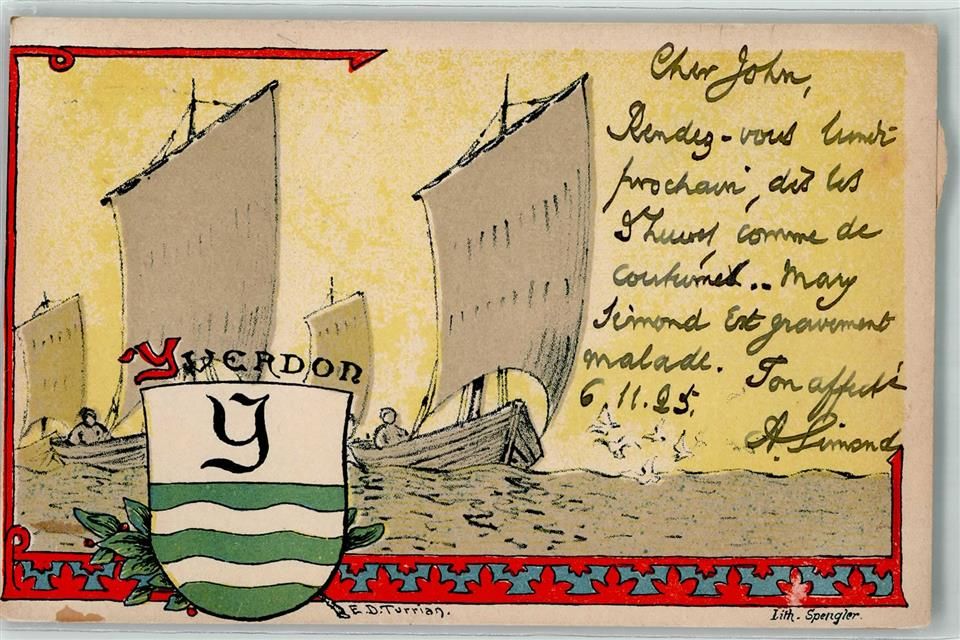 Cher John,
Rendez-vous lundi
prochain, dès les
9 heures, comme de
coutume.. Mary
Simond Est gravement
malade. Ton affect.é
6.11.25.
A. Simond
YVERDON
Y
E.D. Turrian.
Lith. Spengler.